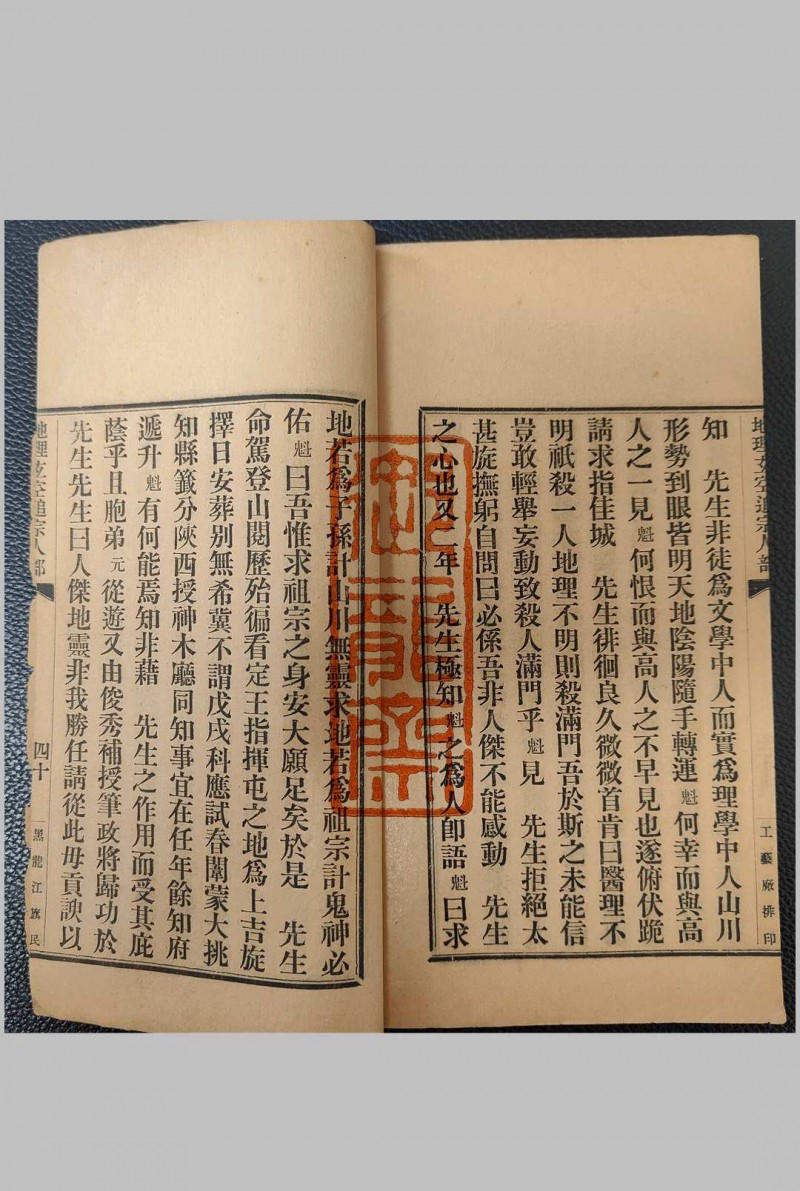 地理玄空追宗人部
工藝廠排印
知　先生非徒爲文學中人而實爲理學中人山川
形勢到眼皆明天地陰陽隨手轉運魁何幸而與高
人之一見魁何恨而與高人之不早見也遂俯伏跪
請求指佳城　先生徘徊良久微微首肯曰醫理不
明祇殺一人地理不明則殺滿門吾於斯之未能信
豈敢輕舉妄動致殺人滿門乎魁見　先生拒絕太
甚旋撫躬自問曰必係吾非人傑不能感動　先生
之心也又二年　先生極知魁之爲人卽語魁曰求
地若爲子孫計山川無靈求地若爲祖宗計鬼神必
佑魁曰吾惟求祖宗之身安大願足矣於是　先生
命駕登山閱歷殆徧看定王指揮屯之地爲上吉旋
擇日安葬別無希冀不謂戊戌科應試春闈蒙大挑
知縣籤分陝西授神木廳同知事宜在任年餘知府
遞升魁有何能焉知非藉　先生之作用而受其庇
蔭乎且胞弟元從遊又由俊秀補授筆政將歸功於
先生先生曰人傑地靈非我勝任請從此毋貢諛以
地理玄空追宗人部
四十
黑龍江旗民